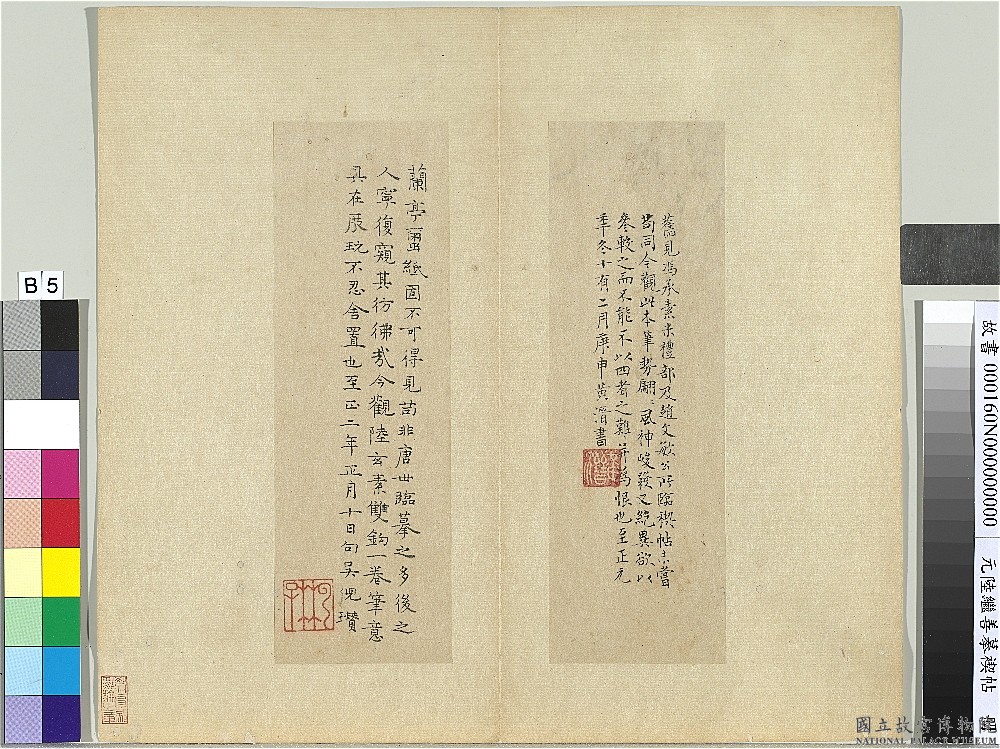 舊見馮承素米禮部及趙文敏公所臨禊帖未嘗
苟同今觀此本筆勢翩〻風神峻發又絕異欲以
叅較之而不能不以四者之難并為恨也至正元
年冬十有二月庚申黃溍書
蘭亭璽紙固不可得見苟非唐世臨摹之多後之
人寧復窺其彷彿哉今觀陸玄素雙鈎一卷筆意
具在展玩不忍舍置也至正二年正月十日句吳倪瓚
B 5
故書 000160N000000000
元陸繼善摹禊帖
國立故宮博物院
NATIONAL PALACE MUSEUM